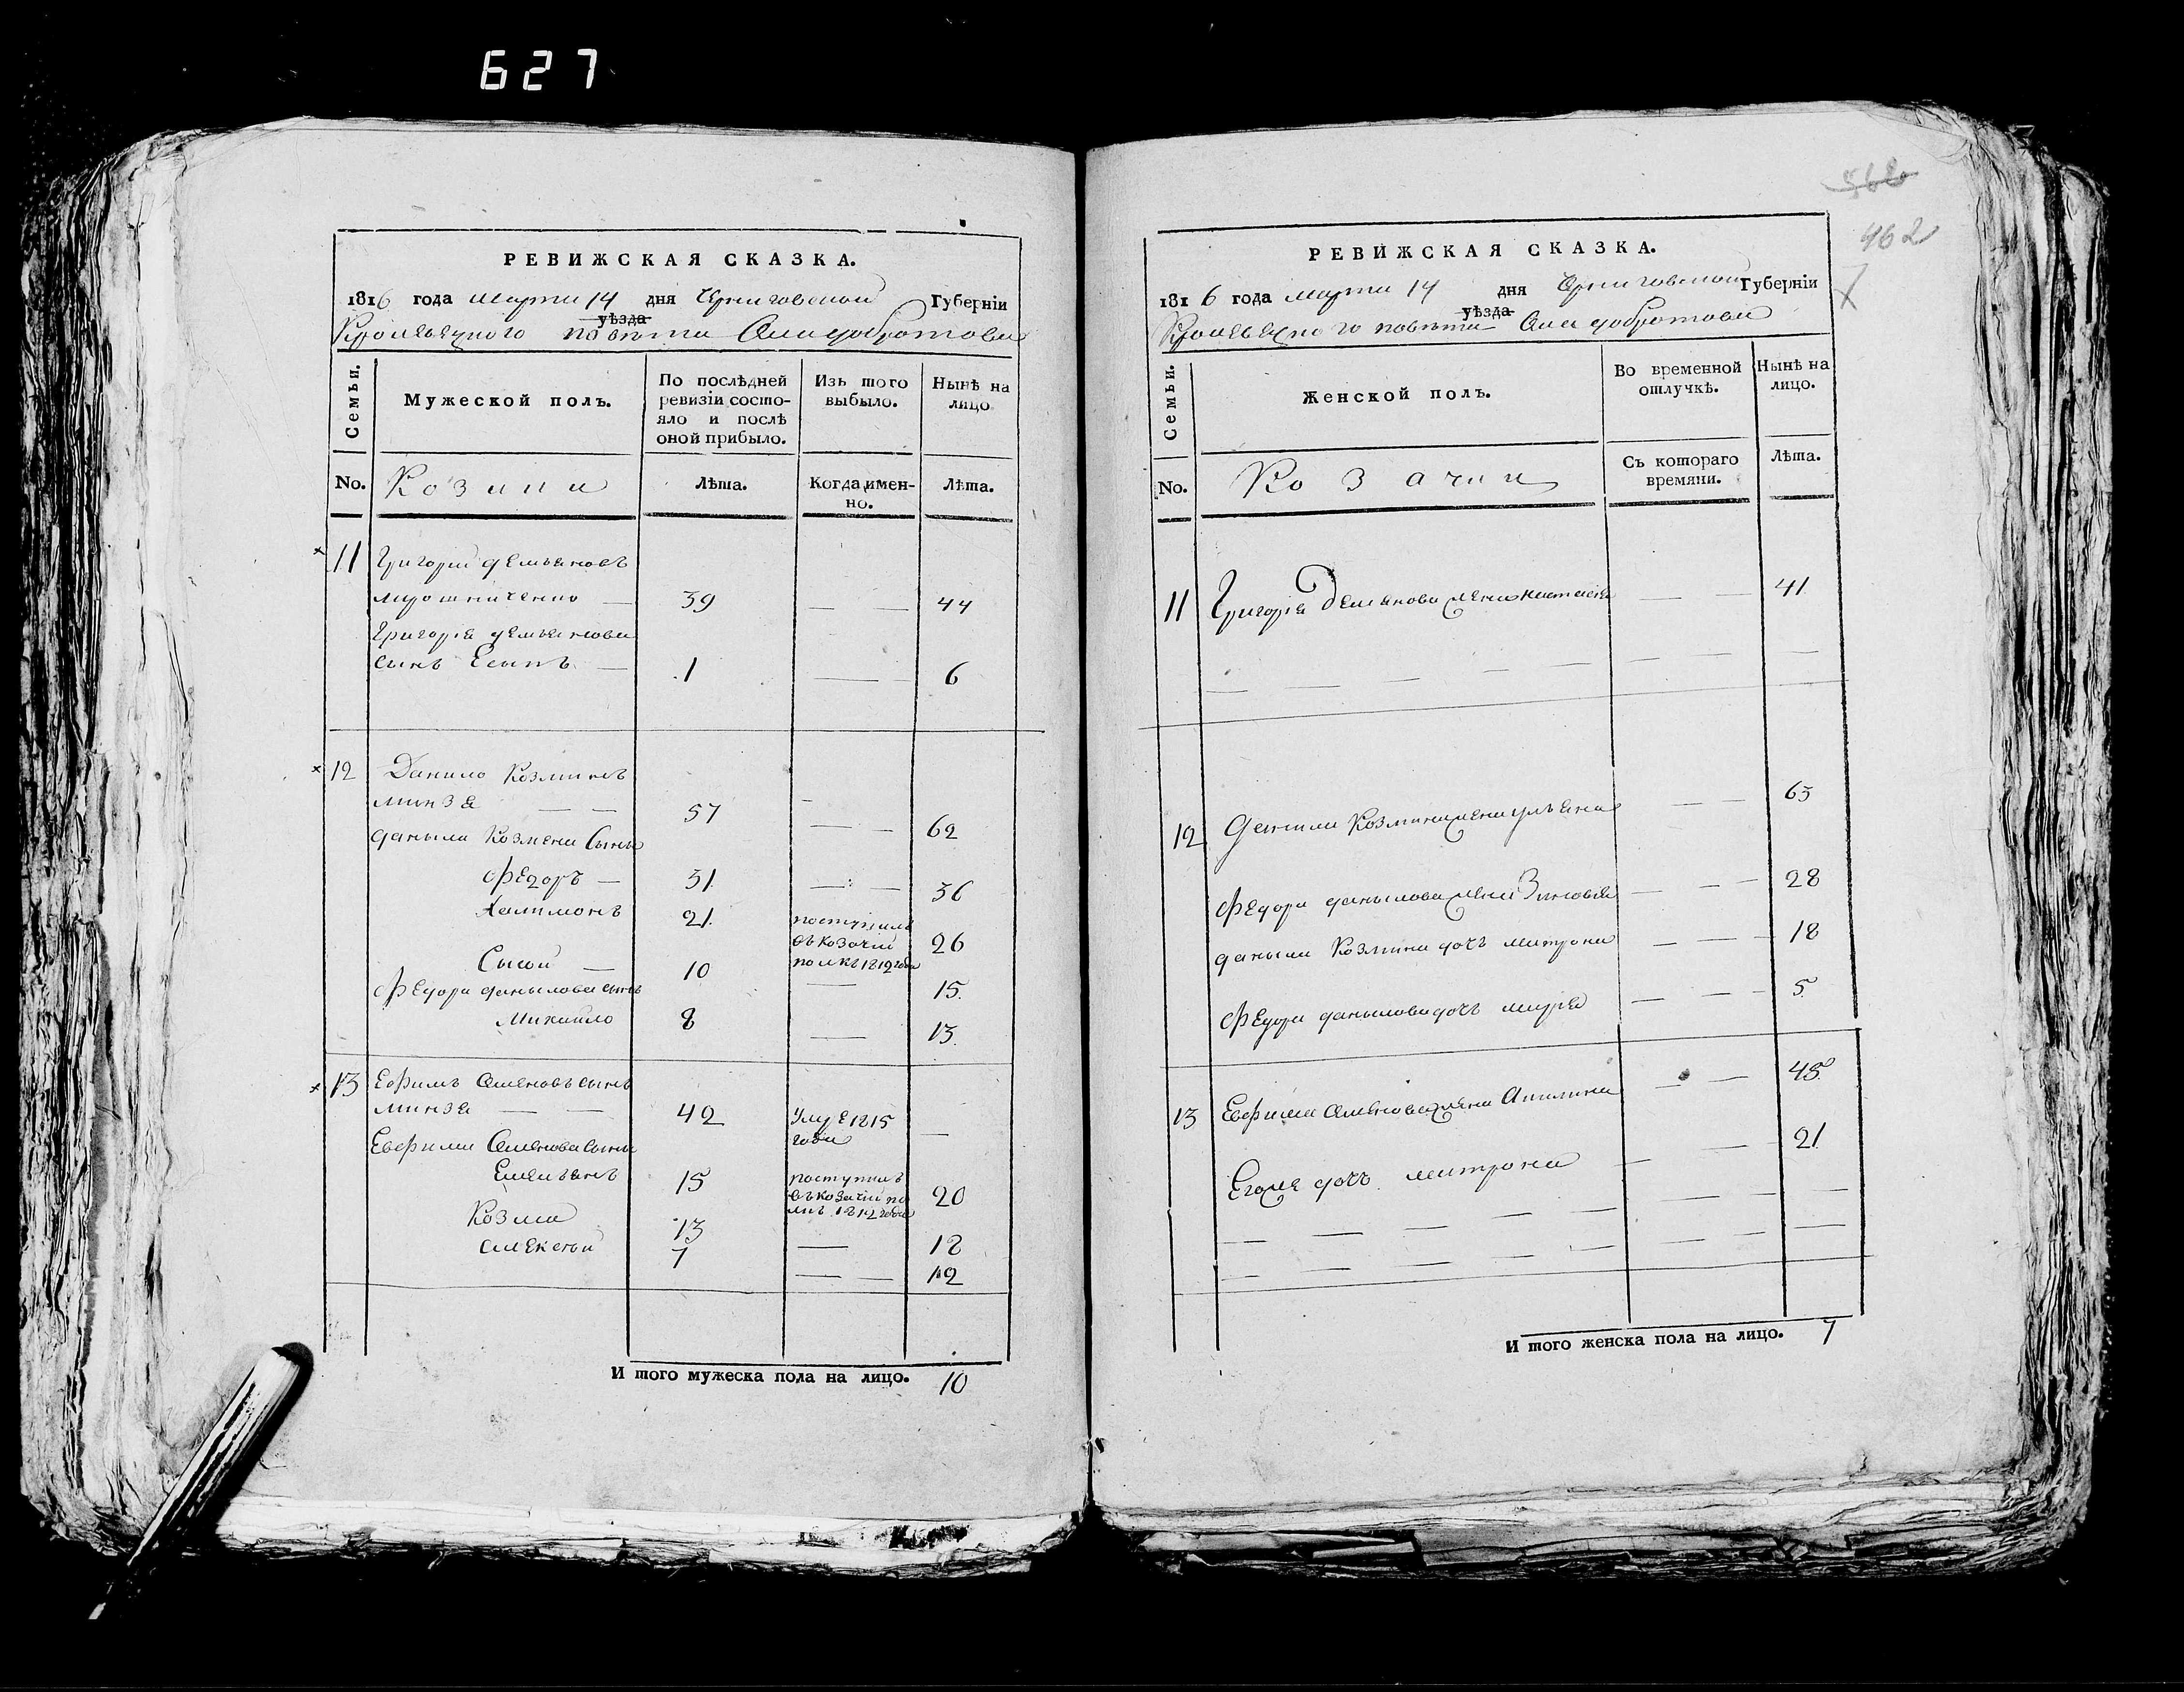 627
РЕВИЖСКАЯ СКАЗКА.
1816 года марта 14 дня Черниговской Губерніи
уѣзда
Кролевецкого повѣта Села добротова
Семьи.
Мужеской полъ.
По послѣдней ревизіи состо-
яло и послѣ
оной прибыло.
Изъ того
выбыло.
Нынѣ на
лицо
No.
Козаки
Лѣта.
Когда имен-
но.
Лѣта.
11 Григорій демъяновъ
мирошниченко — 39 — — 44
Григорія демъянова
сынъ Есипъ — 1 — — 6
12 Данило Козминъ
минзя — — 57 — — 62
данила Козмина Сыны
Федоръ — 31 — — 36
Халимонъ 21 поступилъ
въ козачий 26
полкъ 1812 года
Сысой — 10 — 15
Федора данылова сынъ
Михайло 8 — 13
13 Ефимъ Семеновъ сынъ
минзя — — 42 Умре 1815
года —
Евфима Семенова Сыны
Емелъянъ 15 поступилъ
въ козачій по 20
лкъ 1812 года
Козма 13 — 18
алексѣй 7 — — 12
И того мужеска пола на лицо. 10
462
РЕВИЖСКАЯ СКАЗКА.
1816 года марта 14 дня Черниговской Губерніи
уѣзда
Кролевецкого повѣта Села добротова
Семьи.
Женской полъ.
Во временной
отлучкѣ.
Нынѣ на
лицо.
No.
Козачки
Съ котораго
времяни.
Лѣта.
11 Григорія Демянова жена настасія — — 41
12 Данила Козмина жена улъяна — — 63
Федора данылова жена Зиновія — — 28
даныла Козмина дочъ матрона — — 18
Федора данылова дочъ марія — — 5
13 Евфима Семенова жена Акилина — — 45
Егоже дочъ матрона — — 21
И того женска пола на лицо. 7